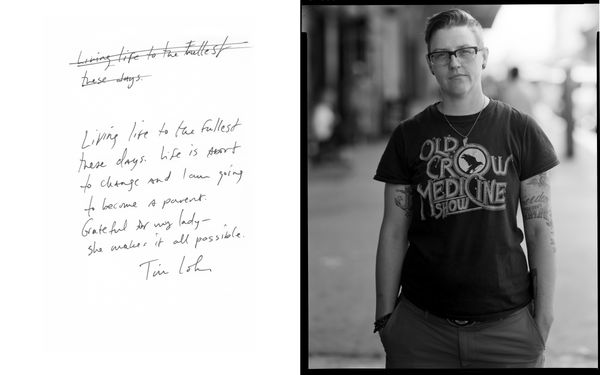 Living life to the fullest
these days.
Living life to the fullest
these days. Life is about
to change and I am going
to become a parent.
Grateful for my lady—
she makes it all possible.
OLD
CROW
MEDICINE
SHOW